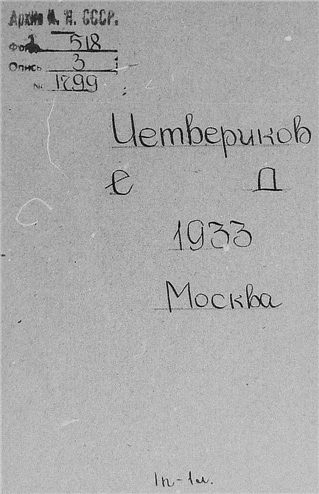 Архив А. Н. СССР.
Фонд 518
Опись 3
№ 1899
Четвериков
С Д
1933
Москва
1п-1л.